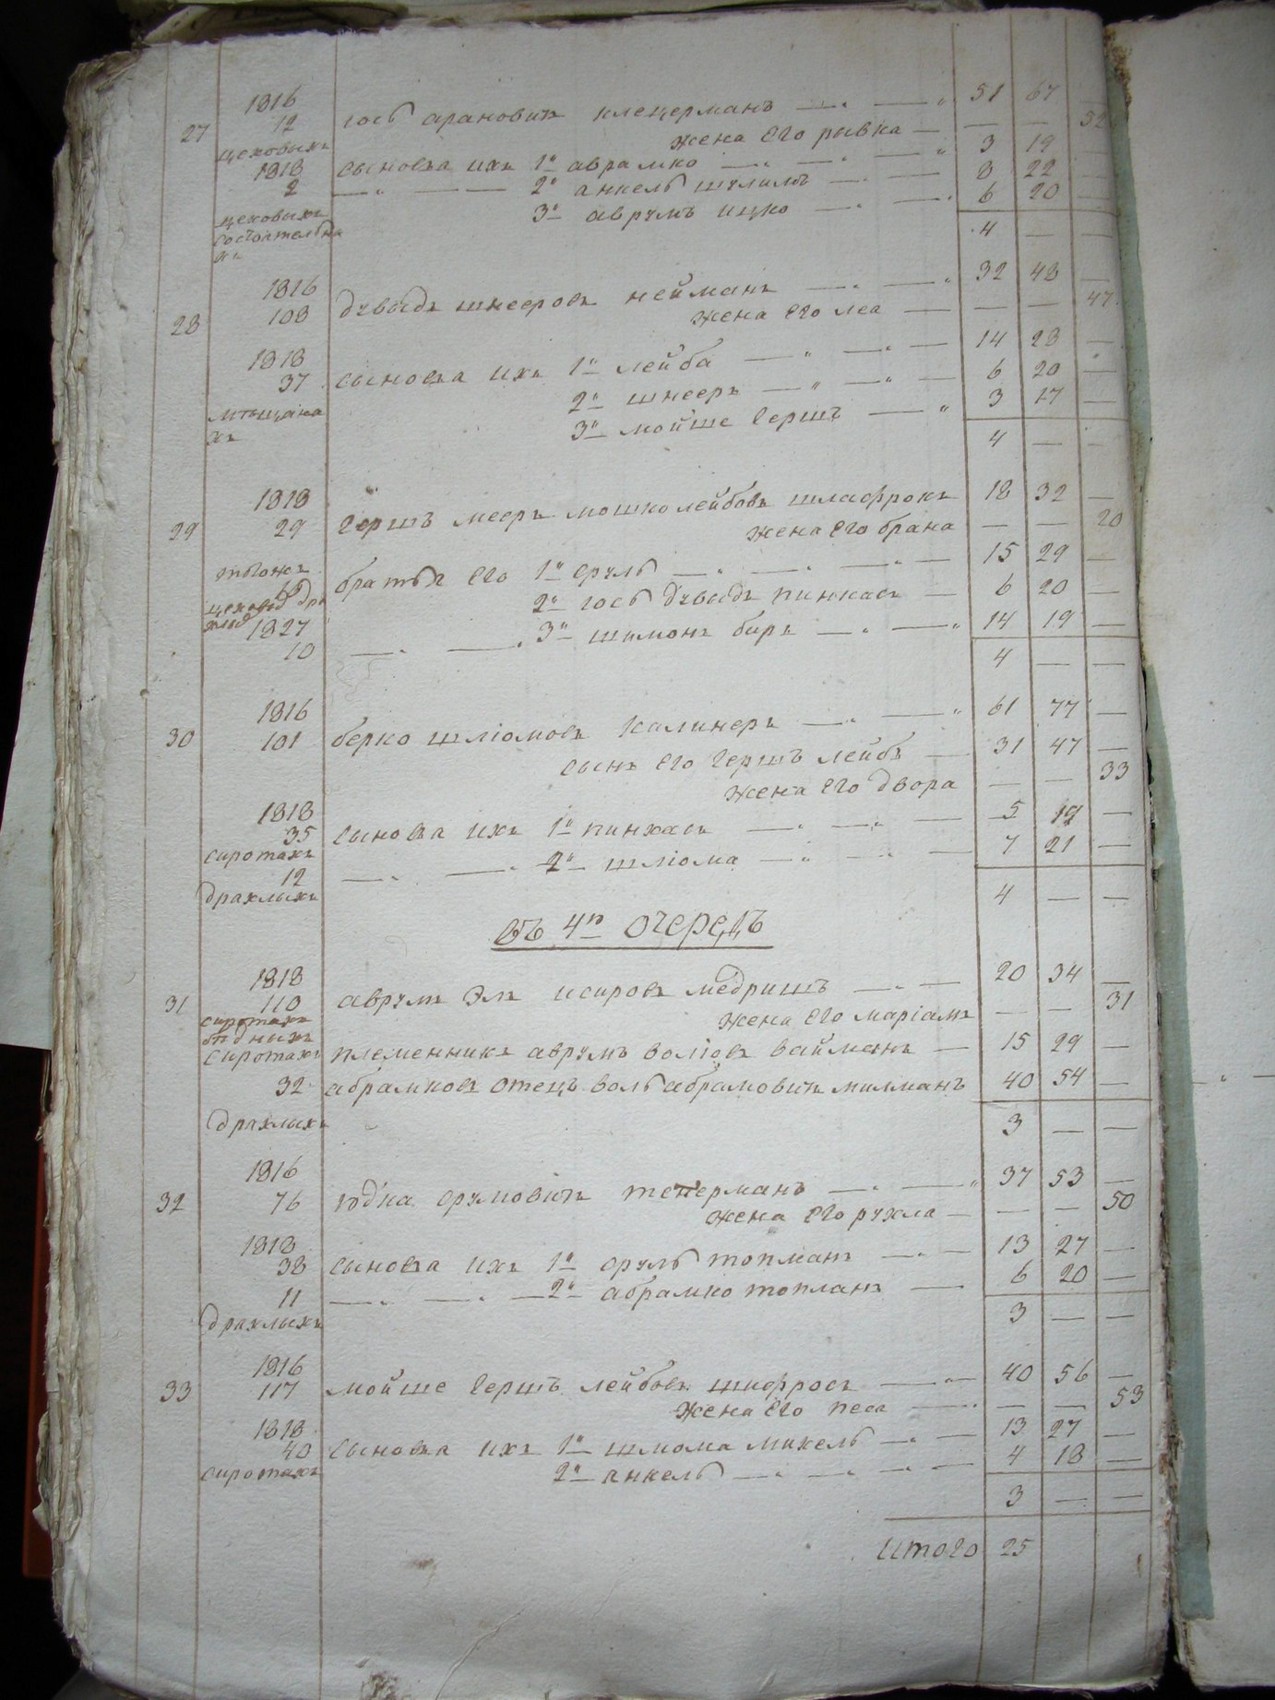 1816
27 12 іосѣ арановичъ клецерманъ — — 51 67
цеховыхъ жена его рывка — — — 52
1818 сыновья ихъ 1й абрамко — — — 3 19
2 — — 2й анкель шулимъ — — 8 22 —
цеховыхъ 3й аврумъ ицко — — 6 20 —
состоятельны
хъ 4 — —
1816
28 108 дувыдъ шнееровъ нейманъ — — 32 48 —
жена его леа — — — 47
1818
37 сыновья ихъ 1й лейба — — — 14 28 —
2й шнееръ — — — 6 20 —
мѣщана
хъ 3й мойше гершъ — 3 17 —
4 — —
1818
29 29 гершъ мееръ мошко лейбовъ шлафрокъ 18 32 —
жена его брана — — 20
братья его 1й сруль — — — — 15 29 —
2й іось дувыдъ пинкасъ — 6 20 —
1827
10 — — 3й шимонъ беръ — — 14 19 —
4 — —
1816
30 101 берко шліомовъ калинеръ — — 61 77 —
сынъ его гершъ лейбъ — 31 47 —
жена его двора — — 33
1818
35 сыновья ихъ 1й пинхасъ — — — 5 19 —
сиротахъ
12 — — 2й шліома — — — 7 21 —
драхлыхъ 4 — —
въ 4й очередь
1818
31 110 аврумъ элъ исировъ медришъ — — 20 34 —
сиротахъ жена его маріамъ — — 31
бѣдныхъ
сиротахъ племенникъ аврумъ воліовъ вайманъ — 15 29 —
32 абрамковъ отецъ воль абрамовичъ милманъ 40 54 —
драхлыхъ 3 — —
1816
32 76 юдка срумовичъ теперманъ — — 37 53 —
жена его рухла — — — 50
1818
38 сыновья ихъ 1й сруль топманъ — — 13 27 —
11 — — — 2й абрамко топланъ — 6 20 —
драхлыхъ 3 — —
1816
33 117 мойше гершъ лейбовъ шифрось — — 40 56 —
жена его песа — — — 53
1818
40 сыновья ихъ 1й шліома михель — — 13 27 —
сиротахъ 2й анкель — — — — 4 18 —
3 — —
итого 25